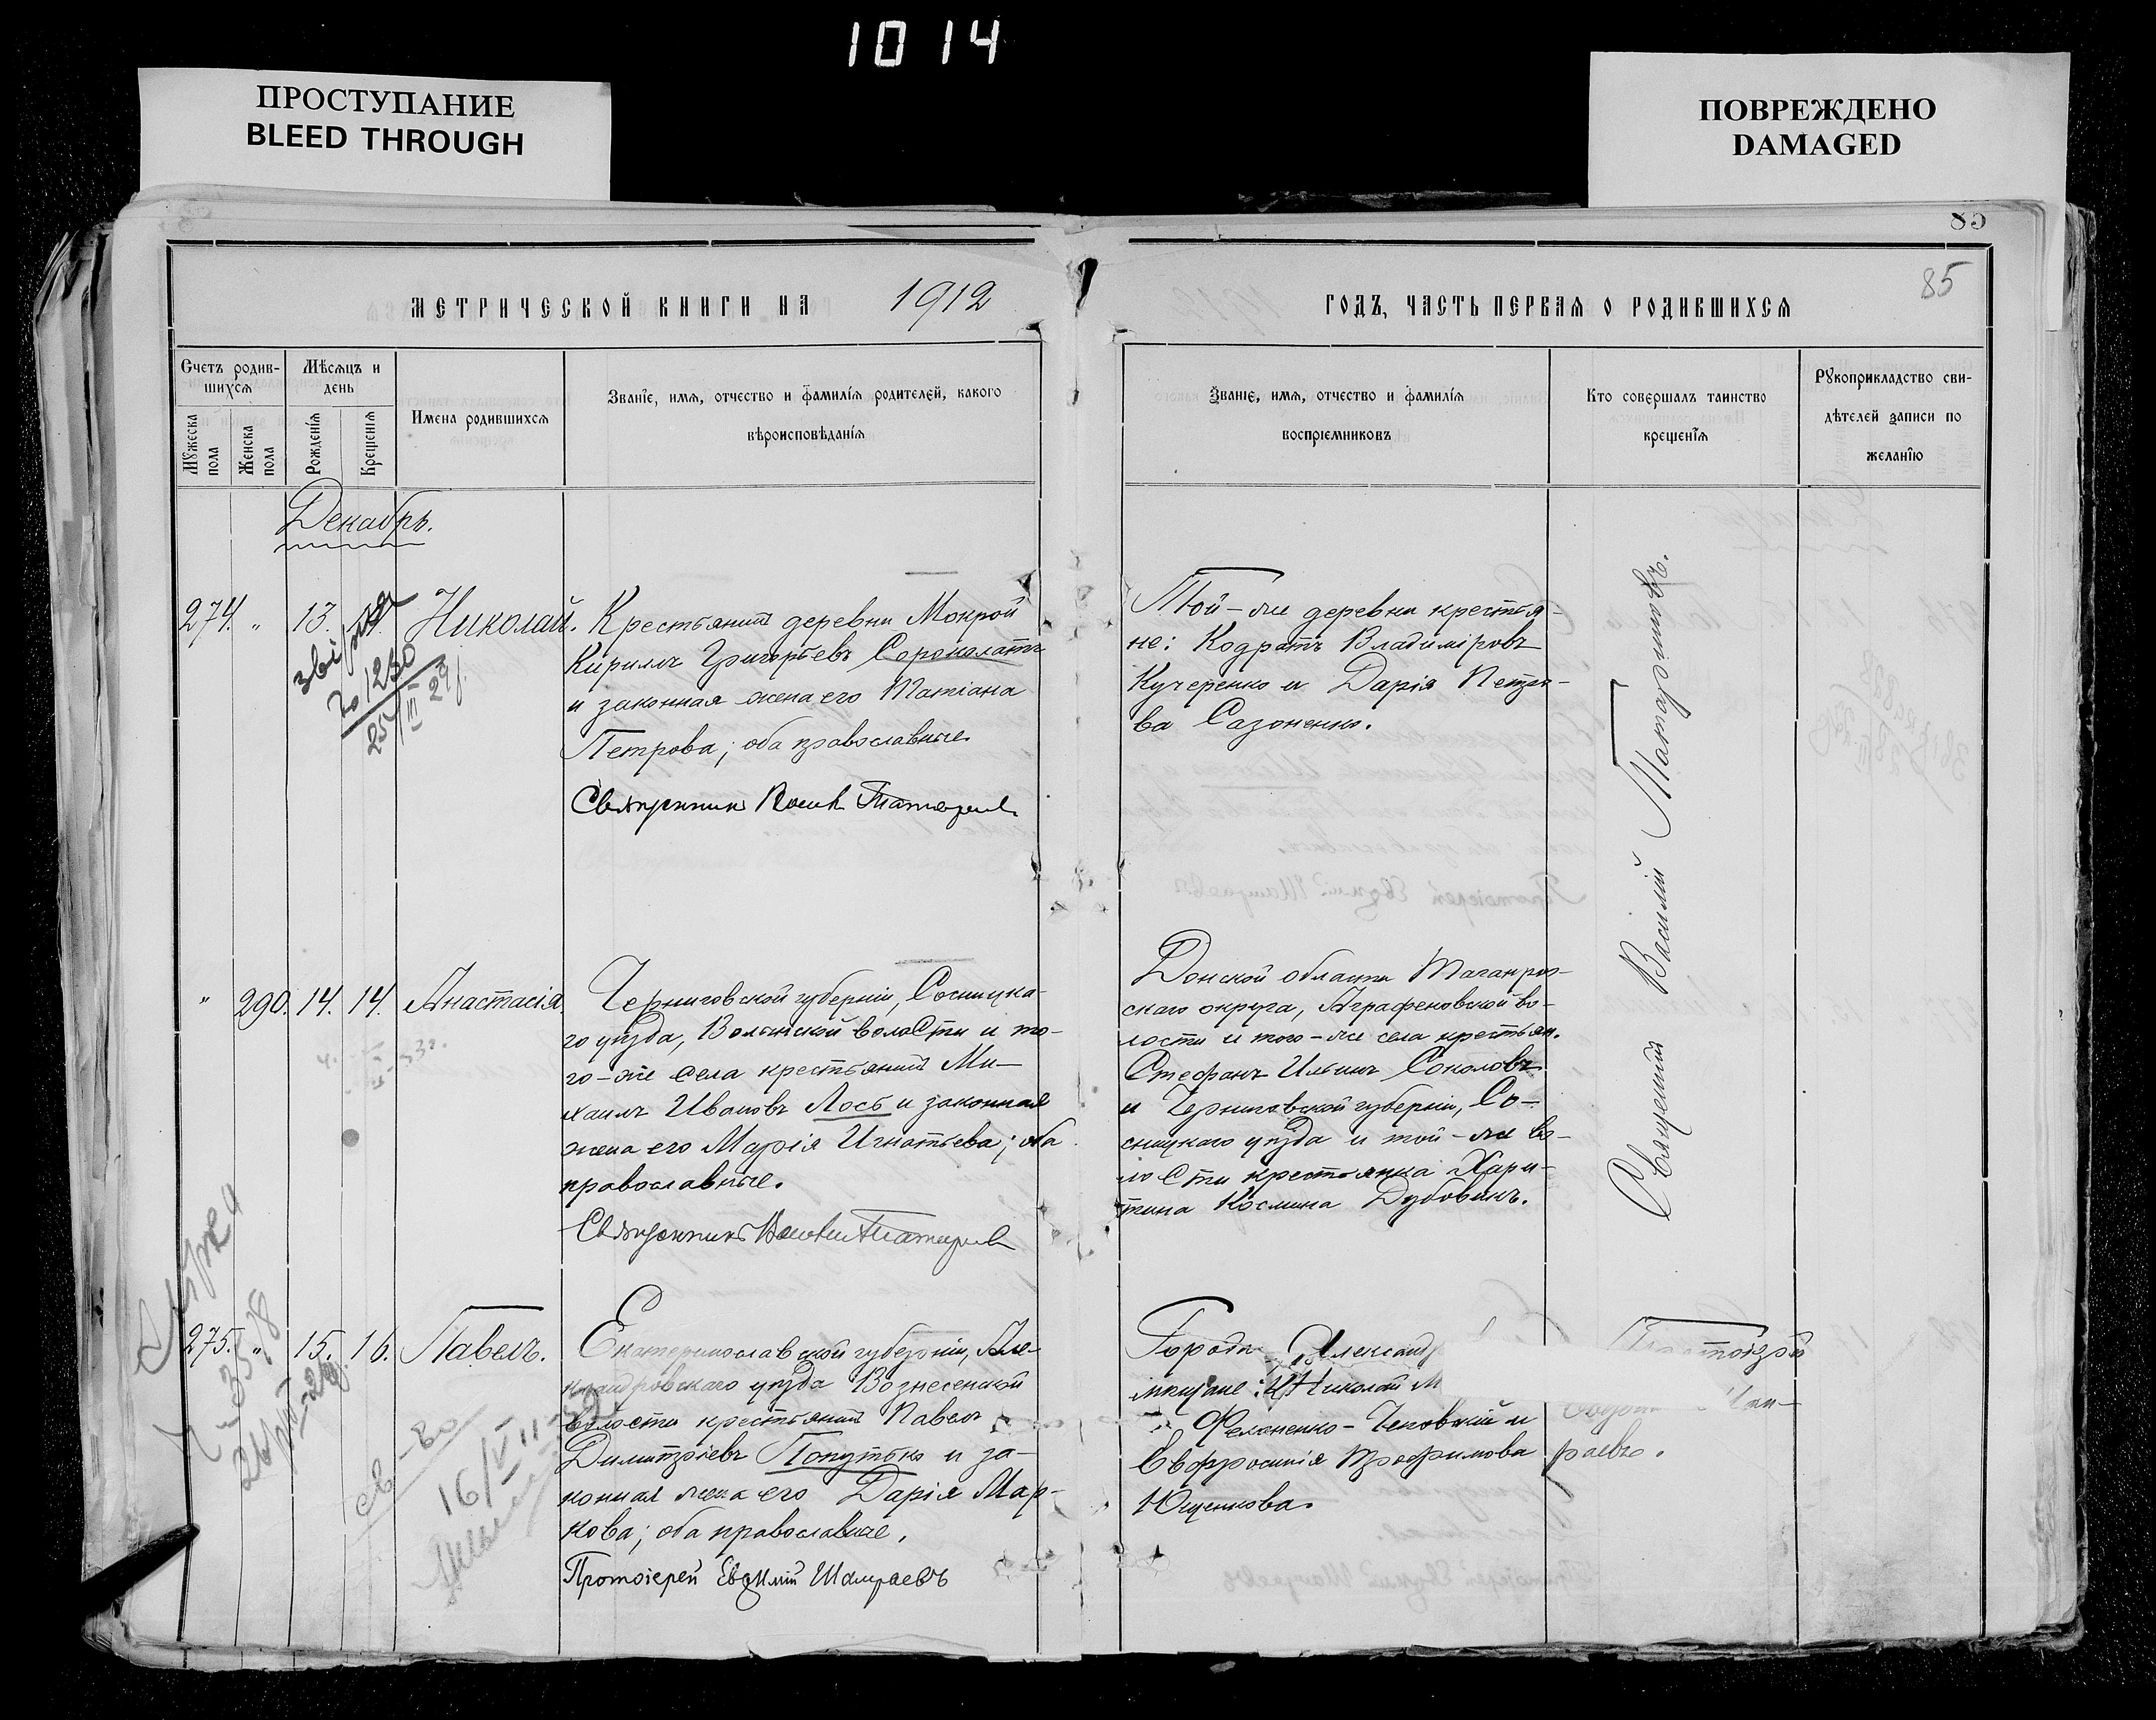 1014
ПРОСТУПАНИЕ
BLEED THROUGH
ПОВРЕЖДЕНО
DAMAGED
85
85
МЕТРИЧЕСКОЙ КНИГИ НА 1912
ГОДЪ, ЧАСТЬ ПЕРВАЯ О РОДИВШИХСЯ
Счетъ родив-
шихся
Мужеска пола
Женска пола
Мѣсяцъ и
день
Рожденія
Крещенія
Имена родившихся
Званіе, имя, отчество и фамилія родителей, какого
вѣроисповѣданія
Званіе, имя, отчество и фамилія
воспріемниковъ
Кто совершалъ таинство
крещенія
Рукоприкладство сви-
дѣтелей записи по
желанію
Декабрь.
274. " 13. Николай.
Крестьянинъ деревни Мокрой
Кириллъ Григорьевъ Сороколатъ
и законная жена его Татіана
Петрова; оба православные.
Священникъ
Той-же деревни крестья-
не: Кодратъ Владиміровъ
Кучеренко и Дарія Петро-
ва Сазоненко.
Священникъ Василій
1230
25/III 29
" 290. 14. 14. Анастасія.
Черниговской губерніи, Сосницка-
го уѣзда, Волынской волости и то-
го-же села крестьянинъ Ми-
хаилъ Ивановъ Лось и законная
жена его Марія Игнатьева; оба
православные.
Священникъ
Донской области Таганрог-
скаго округа, Аграфеновской во-
лости и того-же села крестьян.
Стефанъ Ильинъ Соколовъ
и Черниговской губерніи, Со-
сницкаго уѣзда и той-же во-
лости крестьянка Хари-
тина Космина Дубовикъ.
275. " 15. 16. Павелъ.
Екатеринославской губерніи, Але-
ксандровскаго уѣзда Вознесенской
волости крестьянинъ Павелъ
Димитріевъ Попутько и за-
конная жена его Дарія Мар-
кова; оба православные.
Протоіерей Евѳимій Шамраевъ
Города Александр
мѣщане: Николай М
Феланенко-Чековскій и
Евфросинія Трофимова
Ющенкова.
Протоіерей
раевъ.
16/VII